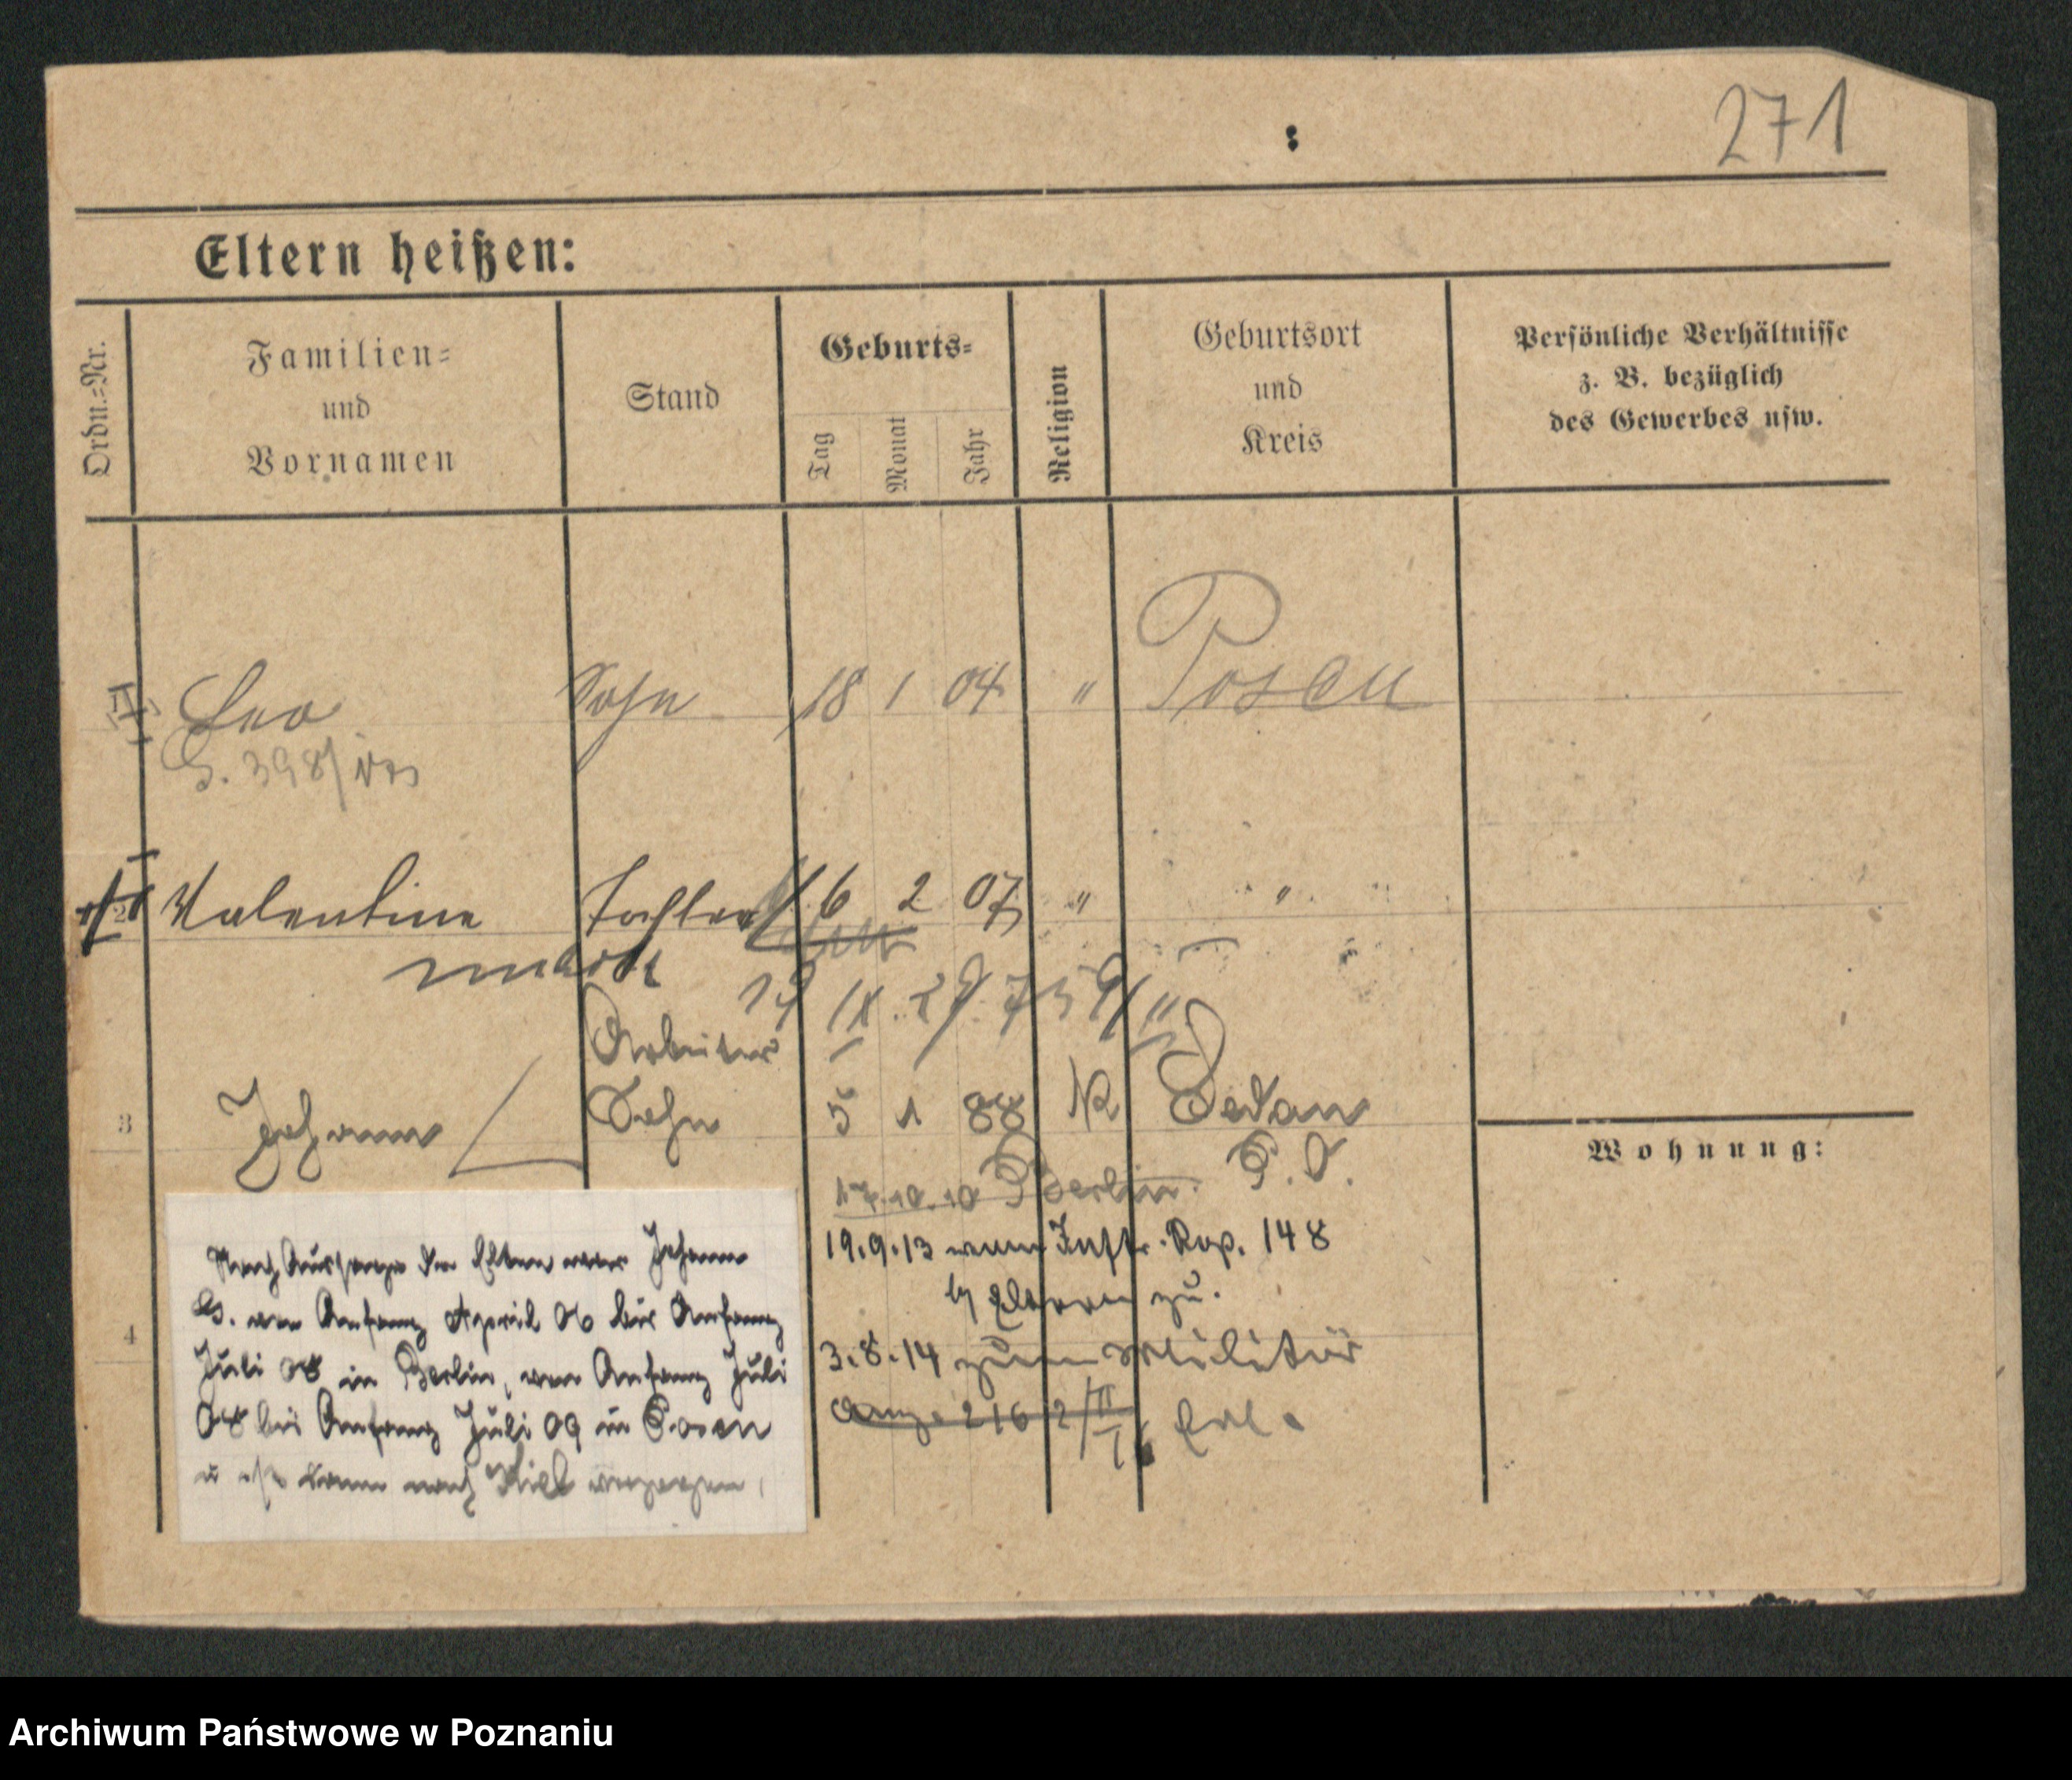 271
Eltern heißen:
Ordn.-Nr.
Familien-
und
Vornamen
Stand
Geburts-
Tag
Monat
Jahr
Religion
Geburtsort
und
Kreis
Persönliche Verhältnisse
z. B. bezüglich
des Gewerbes usw.
Leo Sohn 18 1 04 " Posen
G. 398/
2 Valentine Tochter 6 2 07 " "
Arbeiter
3 Johann Sohn 5 1 88 K Sedan
17.10.10 Berlin. P.O.
Wohnung:
19.9.13 vom Inftr. Rgt. 148
Eltern zu.
4
3.8.14 zum Militär
Nach Aussage der Eltern war Johann
G. von Anfang April 06 bis Anfang
Juli 08 in Berlin, von Anfang Juli
08 bis Anfang Juli 09 in Posen
u dann nach Kiel verzogen.
Archiwum Państwowe w Poznaniu